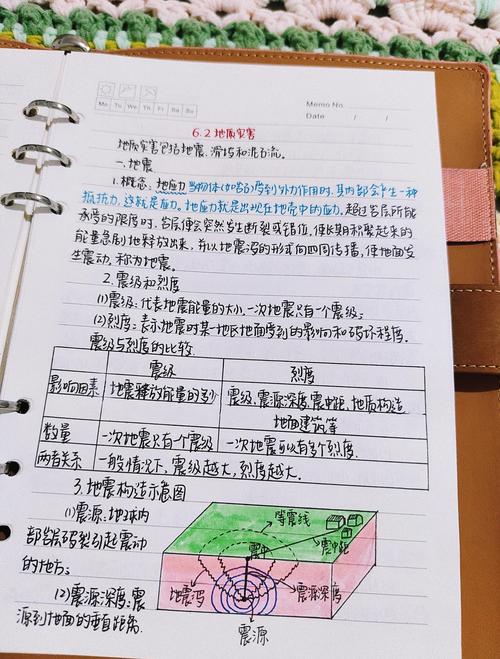 Memo No.
Mo Tu We Th Fr Sa Su
Date / /
6.2地质灾害
地质灾害包括地震、滑坡和泥石流。
一、地震
1.概念:地应力 当物体(如岩石)受到外力作用时,其内部会产生一种
抵抗力,这就是应力。地应力就是出现在地壳中的应力。超过岩层所能
承受的限度时,岩层便会突然发生断裂或错位,使长期积聚起来的
能量急剧地释放出来,并以地震波的形式向四周传播,使地面发
生震动,称为地震。
2.震级和烈度
(1)震级:代表地震能量的大小,一次地震只有一个震级;
(2)烈度:表示地震时某一地区地面受到的影响和破坏程度。
震级与烈度的比较
震级 烈度
影响因素 地震释放能量的多少 震级、震源深度、震中距、地质构造
地面建筑等
数量 一次地震只有一个震级 一次地震可以有多个烈度.
两者关系 一般情况下,震级越大,烈度越大.
3.地震构造示意图
(1)震源:地球内
部岩层破裂引起震动
的地方;
(2)震源深度:震
源到地面的垂直距离.
等震线
震中
震中距
地震波
震源深度
震源